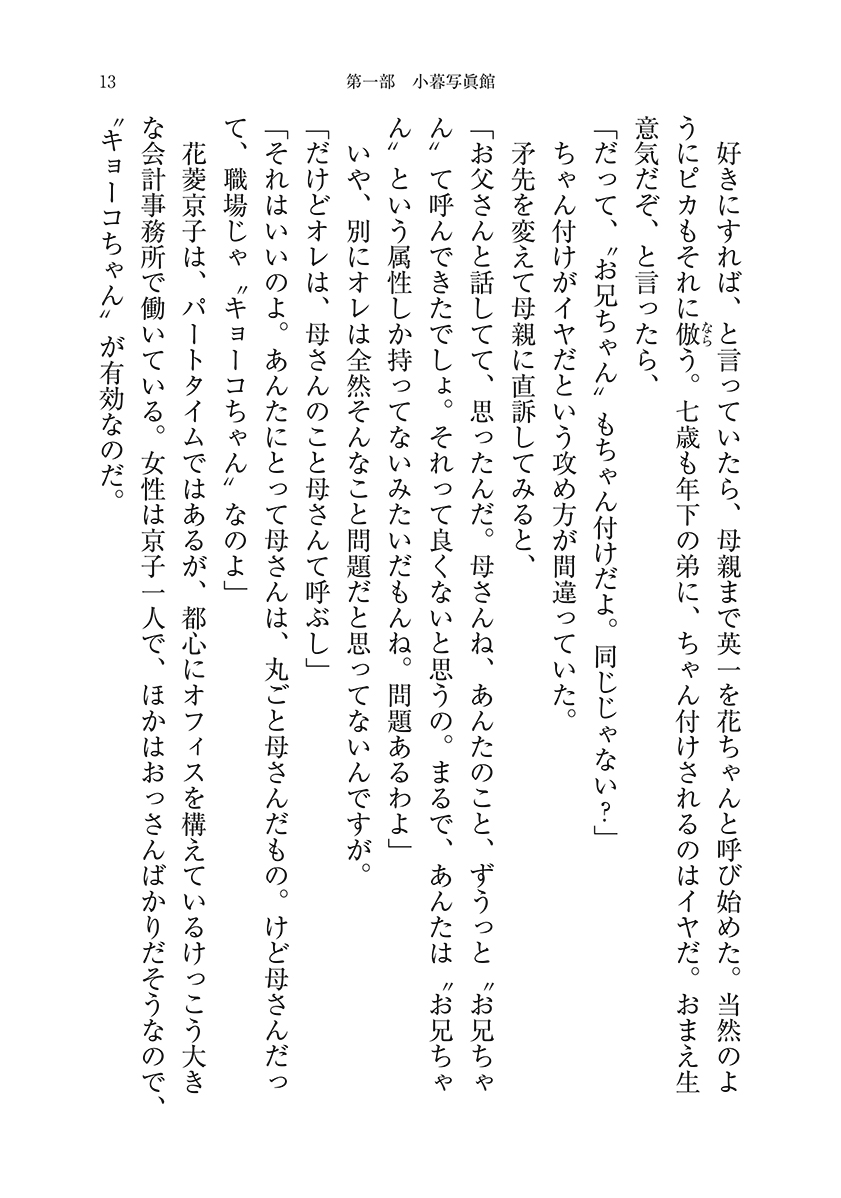 13
第一部　小暮写眞館
　好きにすれば、と言っていたら、母親まで英一を花ちゃんと呼び始めた。当然のよ
うにピカもそれに倣う。七歳も年下の弟に、ちゃん付けされるのはイヤだ。おまえ生
なら
意気だぞ、と言ったら、
「だって、〝お兄ちゃん〟もちゃん付けだよ。同じじゃない？」
　ちゃん付けがイヤだという攻め方が間違っていた。
　矛先を変えて母親に直訴してみると、
「お父さんと話してて、思ったんだ。母さんね、あんたのこと、ずうっと〝お兄ちゃ
ん〟て呼んできたでしょ。それって良くないと思うの。まるで、あんたは〝お兄ちゃ
ん〟という属性しか持ってないみたいだもんね。問題あるわよ」
　いや、別にオレは全然そんなこと問題だと思ってないんですが。
「だけどオレは、母さんのこと母さんて呼ぶし」
「それはいいのよ。あんたにとって母さんは、丸ごと母さんだもの。けど母さんだっ
て、職場じゃ〝キョーコちゃん〟なのよ」
　花菱京子は、パートタイムではあるが、都心にオフィスを構えているけっこう大き
な会計事務所で働いている。女性は京子一人で、ほかはおっさんばかりだそうなので、
〝キョーコちゃん〟が有効なのだ。